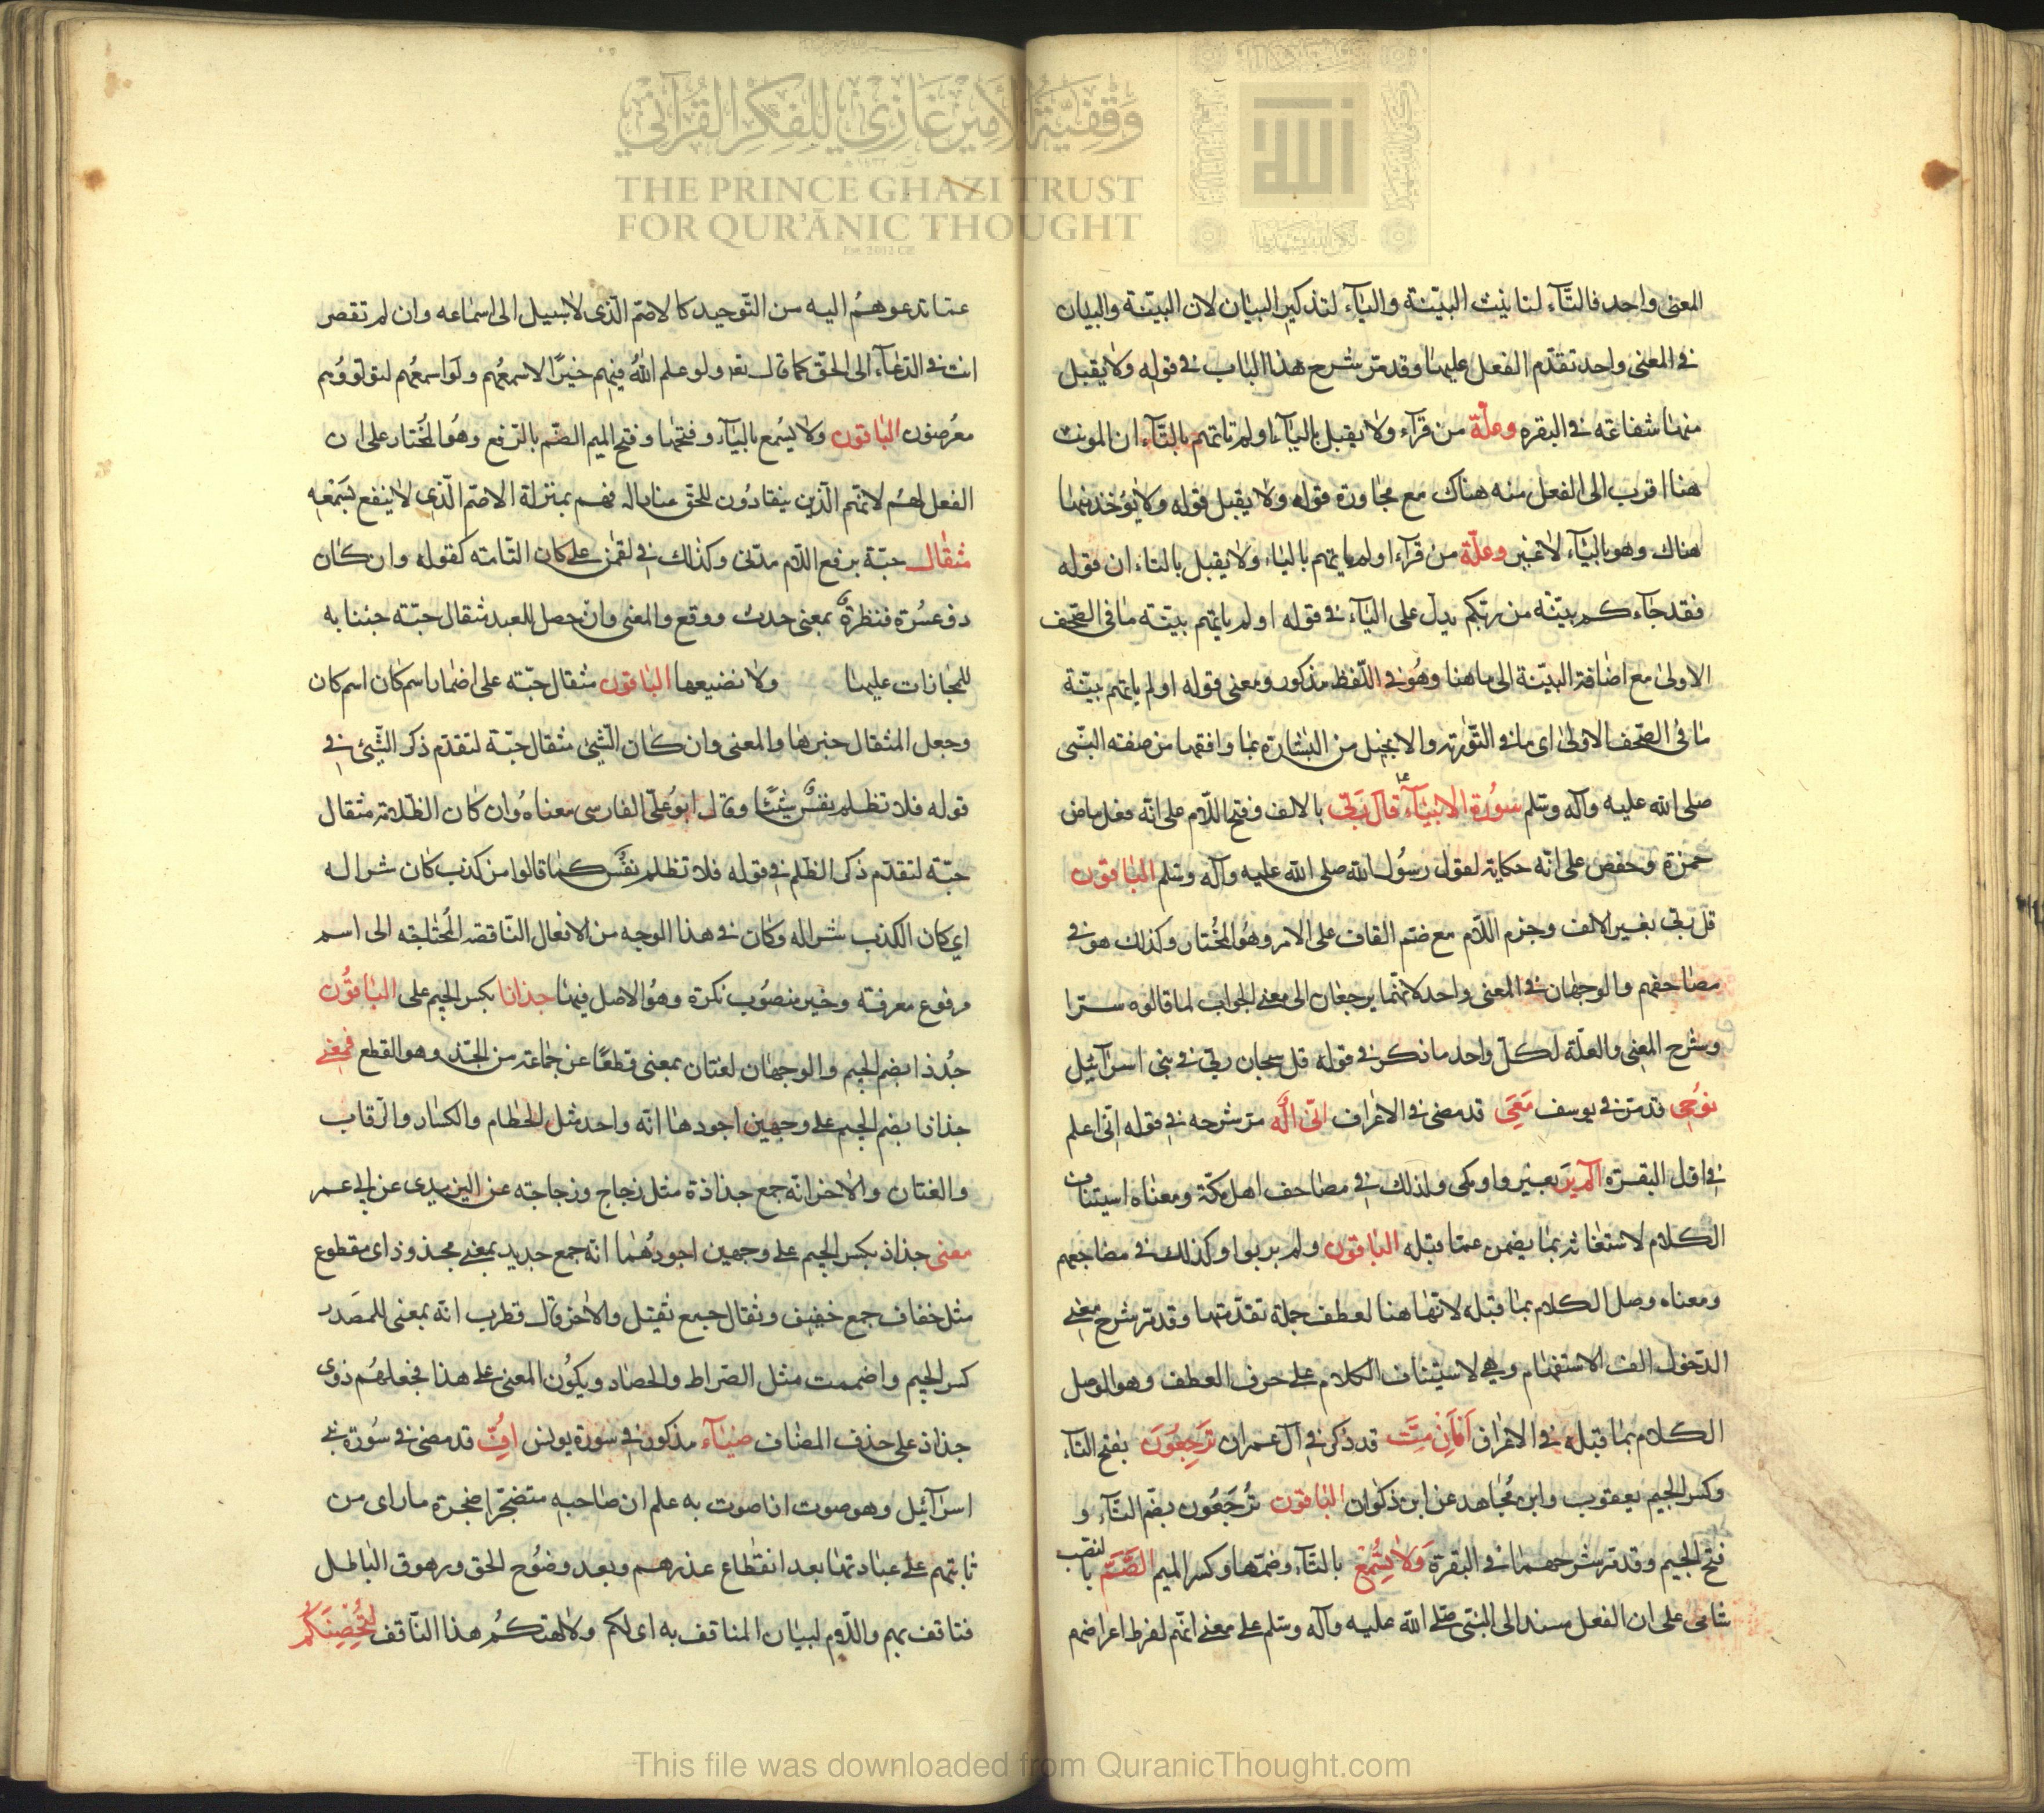 وقفية الأمير غازي للفكر القرآني
THE PRINCE GHAZI TRUST
FOR QUR'ĀNIC THOUGHT
المعنى واحد فالتّآء لتانيث البيّنة واليآء لتذكير البيان لان البيّنة والبيان
فى المعنى واحد تقدّم الفعل عليها وقد مرّ شرح هذا الباب فى قوله ولا يقبل
منها شفاعة فى البقره وعلّة من قرآء ولا يقبل باليآء اولم تاتهم بالتّآء ان المونث
هنا اقرب الى الفعل منه هناك مع مجاورة قوله ولا يقبل قوله ولا يؤخذ منها
هناك وهو باليآء لا غير وعلّة من قرآء اولم ياتهم بالياء ولا يقبل بالتاء ان قوله
فقد جآءكم بيّنة من ربكم يدلّ على اليآء فى قوله اولم ياتهم بيّنة ما فى الصّحف
الاولى مع اضافة البيّنة الى ما هنا وهُو فى اللّفظ مذكور ومعنى قوله اولم ياتهم بيّنة
ما فى الصّحف الاولى اى ما فى التّورية والانجيل من البشارة بما وافقهما من صفته النّبى
صلى الله عليه وآله وسلم سورة الانبيآء قال ربّى بالالف وفتح اللّام على انّه فعل ماض
حمزة وحفص على انّه حكاية لقول رسُول الله صلى الله عليه وآله وسلم الباقون
قل ربّى بغير الالف وجزم اللّام مع ضمّ القاف على الامر وهُو المُختار وكذلك هو فى
مصاحفهم والوجهان فى المعنى واحد لانّهما يرجعان الى معنى الجواب لما قالوه سرّا
وشرح المعنى والعلّة لكلّ واحد ما ذكر فى قوله قل سبحان ربّى فى بنى اسرآئيل
نوُحِى قد مرّ فى يوسف مَعِىَ قد مضى فى الاعراف انّى الَه مرّ شرحه فى قوله انّى اعلم
فى اوّل البقرة المْ يَرَ بغير واو مكى ولذلك فى مصاحف اهل مكّة ومعناه استيناف
الكلام لاستغنائه بما يضمن عمّا قبله الباقون ولم يروا وكذلك فى مصاحفهم
ومعناه وصل الكلام بما قبله لانّها هنا لعطف جملة تقدّمتها وقد مرّ شرح معنى
الدّخول الف الاستفهام وهى لاستيناف الكلام على حرف العطف وهو الوصل
الكلام بما قبله فى الاعراف اَفَاِنْ مِتَّ قد ذكر فى آل عمران تَرجِعُونَ بفتح التآء
وكسر الجيم يعقوب وابن مُجاهد عن ابن ذكوان الباقون تُرجَعُون بضم التّآء و
فتح الجيم وقد مرّ شرحهما فى البقرة وَلا تُسْمِعُ بالتّآء وضمّها وكسر الميم الصُّمَّ بالنصب
شامى على ان الفعل مسند الى النبى صلى الله عليه وآله وسلم على معنى انّهم لفرط اعراضهم
عمّا تدعوهُم اليه من التّوحيد كالاصّم الّذى لا سبيل الى اسماعه وان لم تقصر
انت فى الدّعآء الى الحقّ كما قال تعه ولو علم اللهُ فيهم خيرًا لاسمعهُم ولو اسمعهُم لتولّوا وُهم
معرُضون الباقون ولا يسُمع باليآء وفتحها وفتح الميم الصّم بالرّفع وهُو المُختار على ان
الفعل لهُم لانّهم الّذين ينقادُون للحقّ فهم بمنزلة الاصّم الّذى لا ينفع بسَمْعِه
مثقال حبّة برفع اللّام مدنى وكذلك فى لقمن على كان التّامّة كقوله وان كان
ذو عسُرة فنظرة بمعنى حدث ووقع والمعنى وان حصل للعبد مثقال حبّة جئنا به
للمجازات عليها ولا نضيعها الباقون مثقال حبّة على اضمار اسم كان اسم كان
وجعل المثقال خبرها والمعنى وان كان الشّئ مثقال حبّة لتقدّم ذكر الشّئ فى
قوله فلا تظلم نفسٌ شيئًا وقال ابو علىّ الفارسى معناهُ وان كان الظّلامة مثقال
حبّة لتقدّم ذكر الظّلم فى قوله فلا تظلم نفسٌ كما قالوا من كذب كان شرا له
اى كان الكذب شرا له وكان فى هذا الوجه من الافعال النّاقصه المُحتاجة الى اسم
مرفوع معرفة وخبر منصُوب نكرة وهُو الاصل فيها جذاذا بكسر الجيم على الباقُون
جُذذا بضم الجيم والوجهان لغتان بمعنى قطعًا عن جماعة من الجذّ وهو القطع فمعنى
جذاذا بضم الجيم على وجهين اجودها انّه واحد مثل الحُطام والكسار والرّقاب
والفتان والاخر انّه جمع جذاذة مثل زجاج وزجاجة عن اليزيدى عن ابى عمر
معنى جذاذ بكسر الجيم على وجهين اجودهُما انّه جمع جديد بمعنى مجذوذ اى مقطوع
مثل خفاف جمع خفيف وثقال جمع ثقيل والاخر قال قطرب انّه بمعنى للمصَدر
كسر الجيم واضممت مثل الصّراط والحصاد ويكوُن المعنى على هذا فجعلهُم ذوى
جذاذ على حذف المضاف ضيآء مذكور فى سُورة يونس اُفٍّ قد مضى فى سُورة بنى
اسرآئيل وهو صوت اذا صوت به علم ان صاحبه متضجّر اضجره ما راى من
ثباتهم على عبادتها بعد انقطاع عذرهم وبعد وضُوح الحق وزهوق الباطل
فتاقف بهم واللّام لبيان المتافف به اى لكم ولالهتكُم هذا التّاقف لِتُحْصِنَكُمْ
This file was downloaded from QuranicThought.com